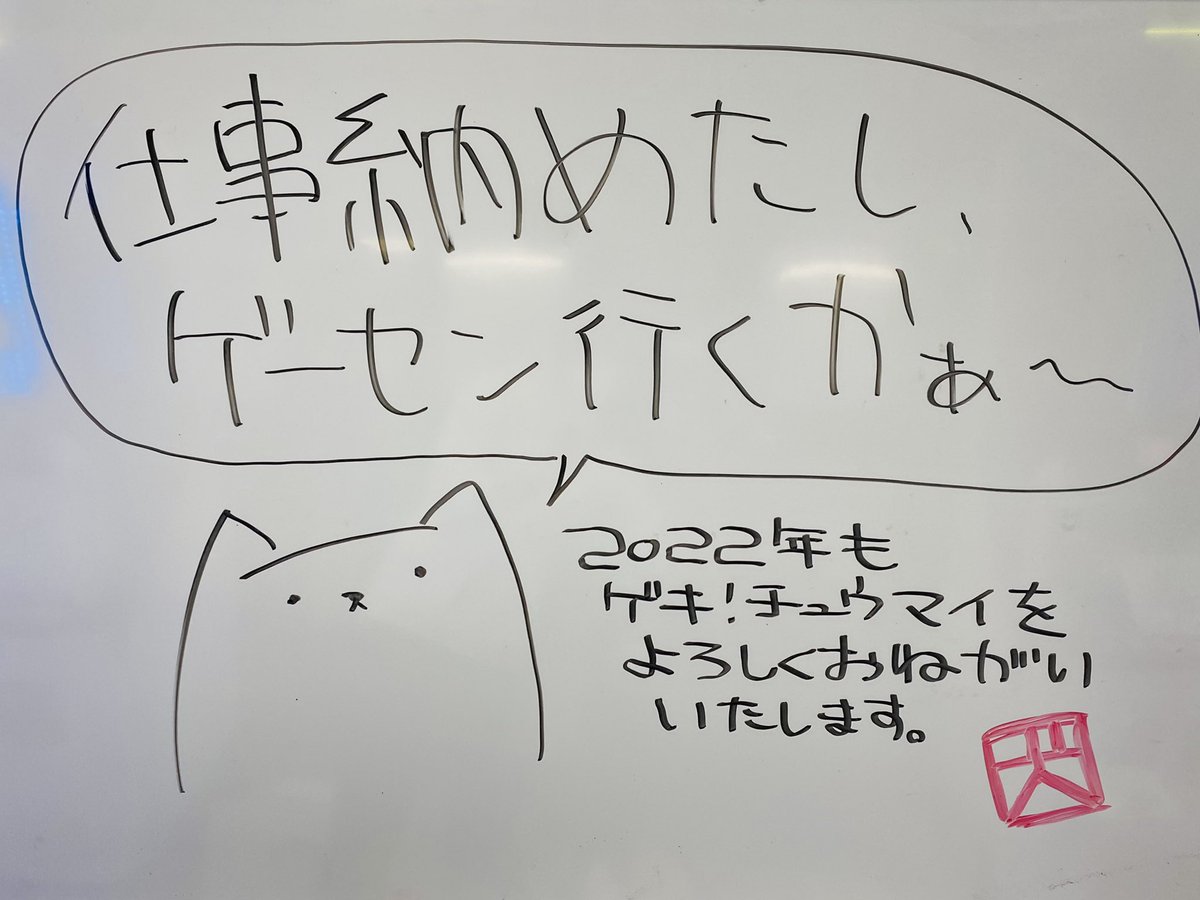 仕事納めたし、
ゲーセン行くかぁ〜
2022年も
ゲキ!チュウマイを
よろしくおねがい
いたします。